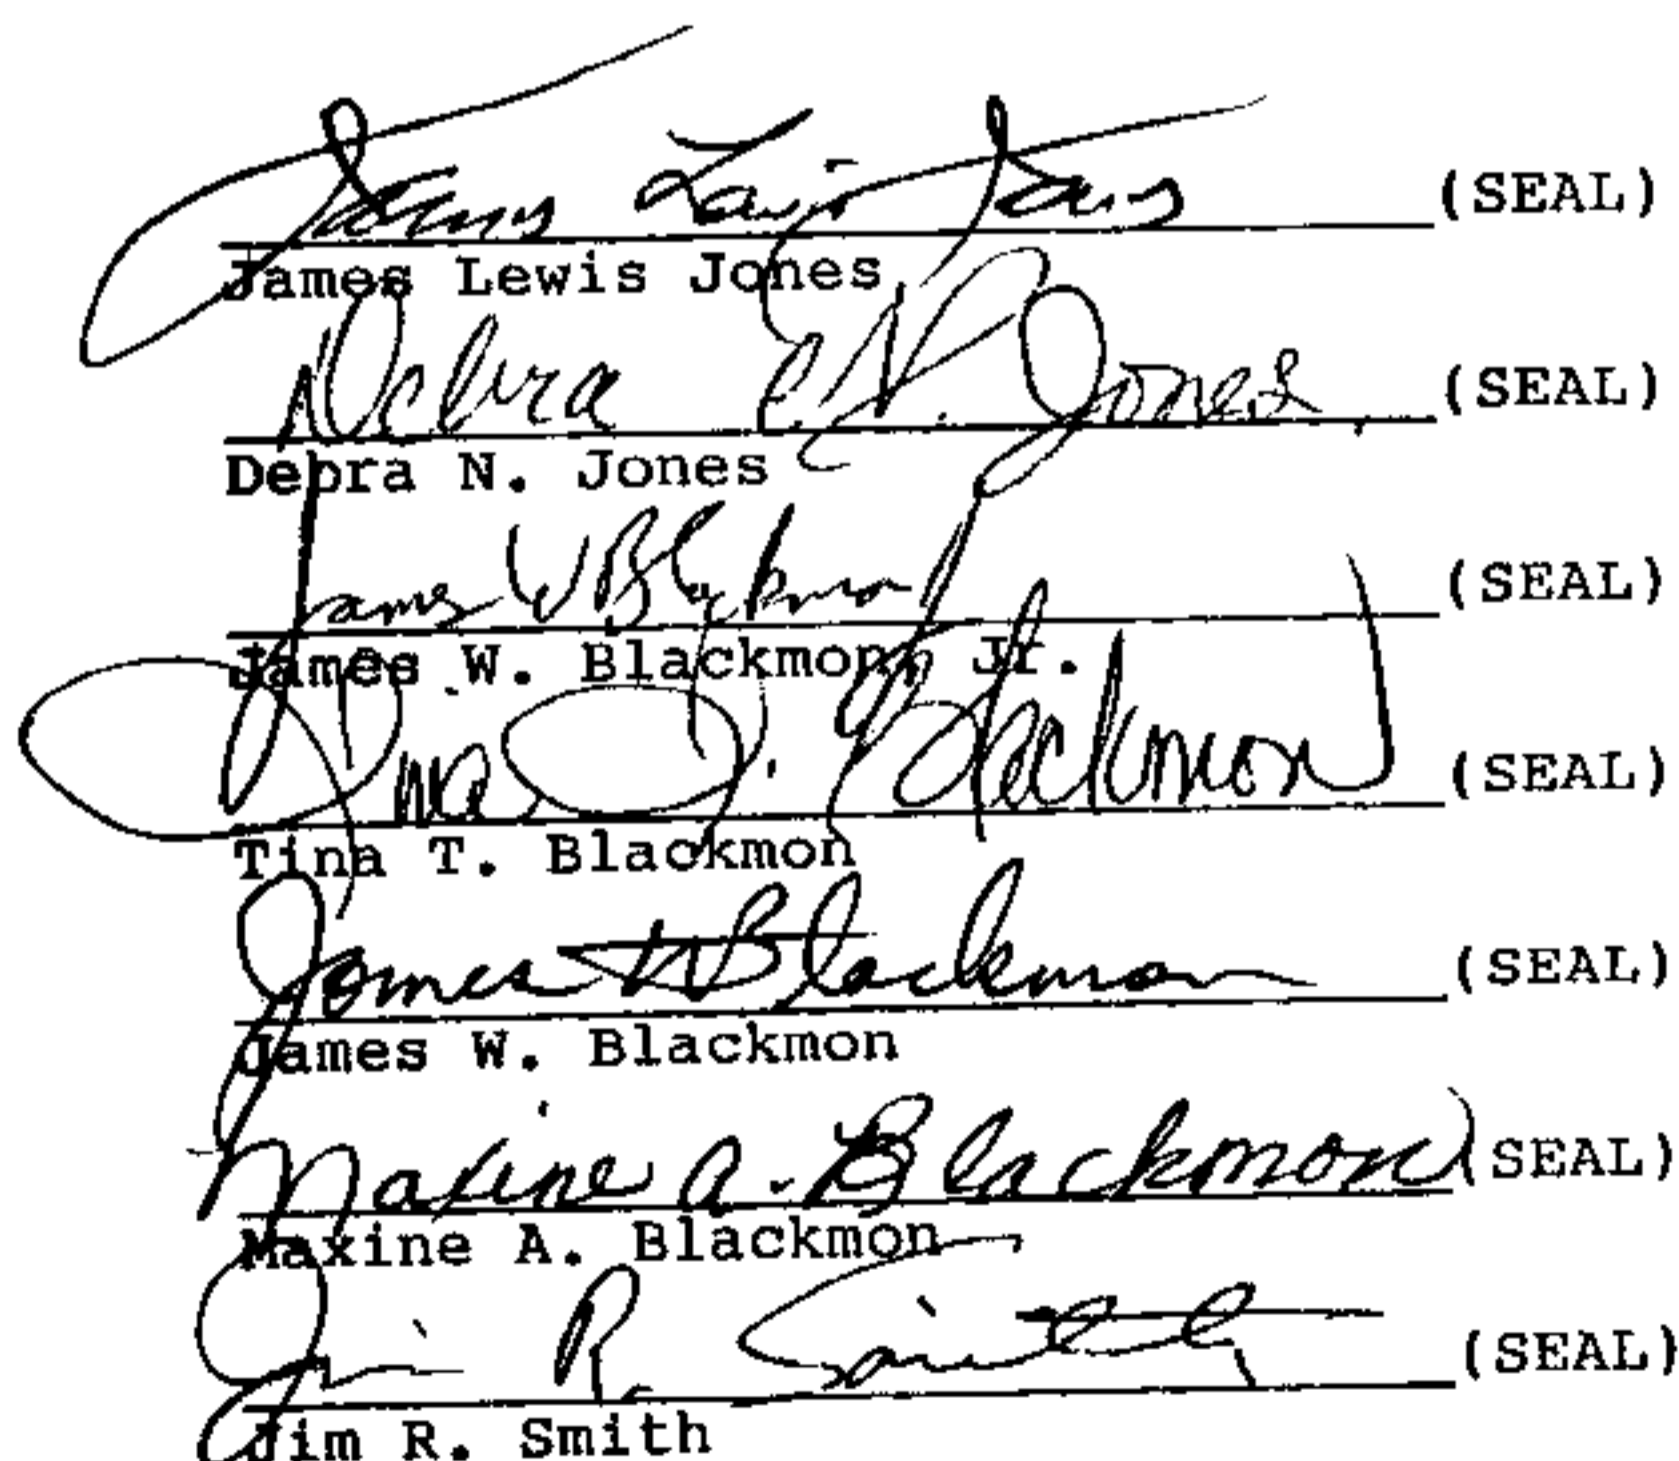 James Lewis Jones (SEAL)
James Lewis Jones
Debra N. Jones (SEAL)
Debra N. Jones
James W Blackmon (SEAL)
James W. Blackmon, Jr.
Tina T. Blackmon (SEAL)
Tina T. Blackmon
James W Blackmon (SEAL)
James W. Blackmon
Maxine A. Blackmon (SEAL)
Maxine A. Blackmon
Jim R. Smith (SEAL)
Jim R. Smith